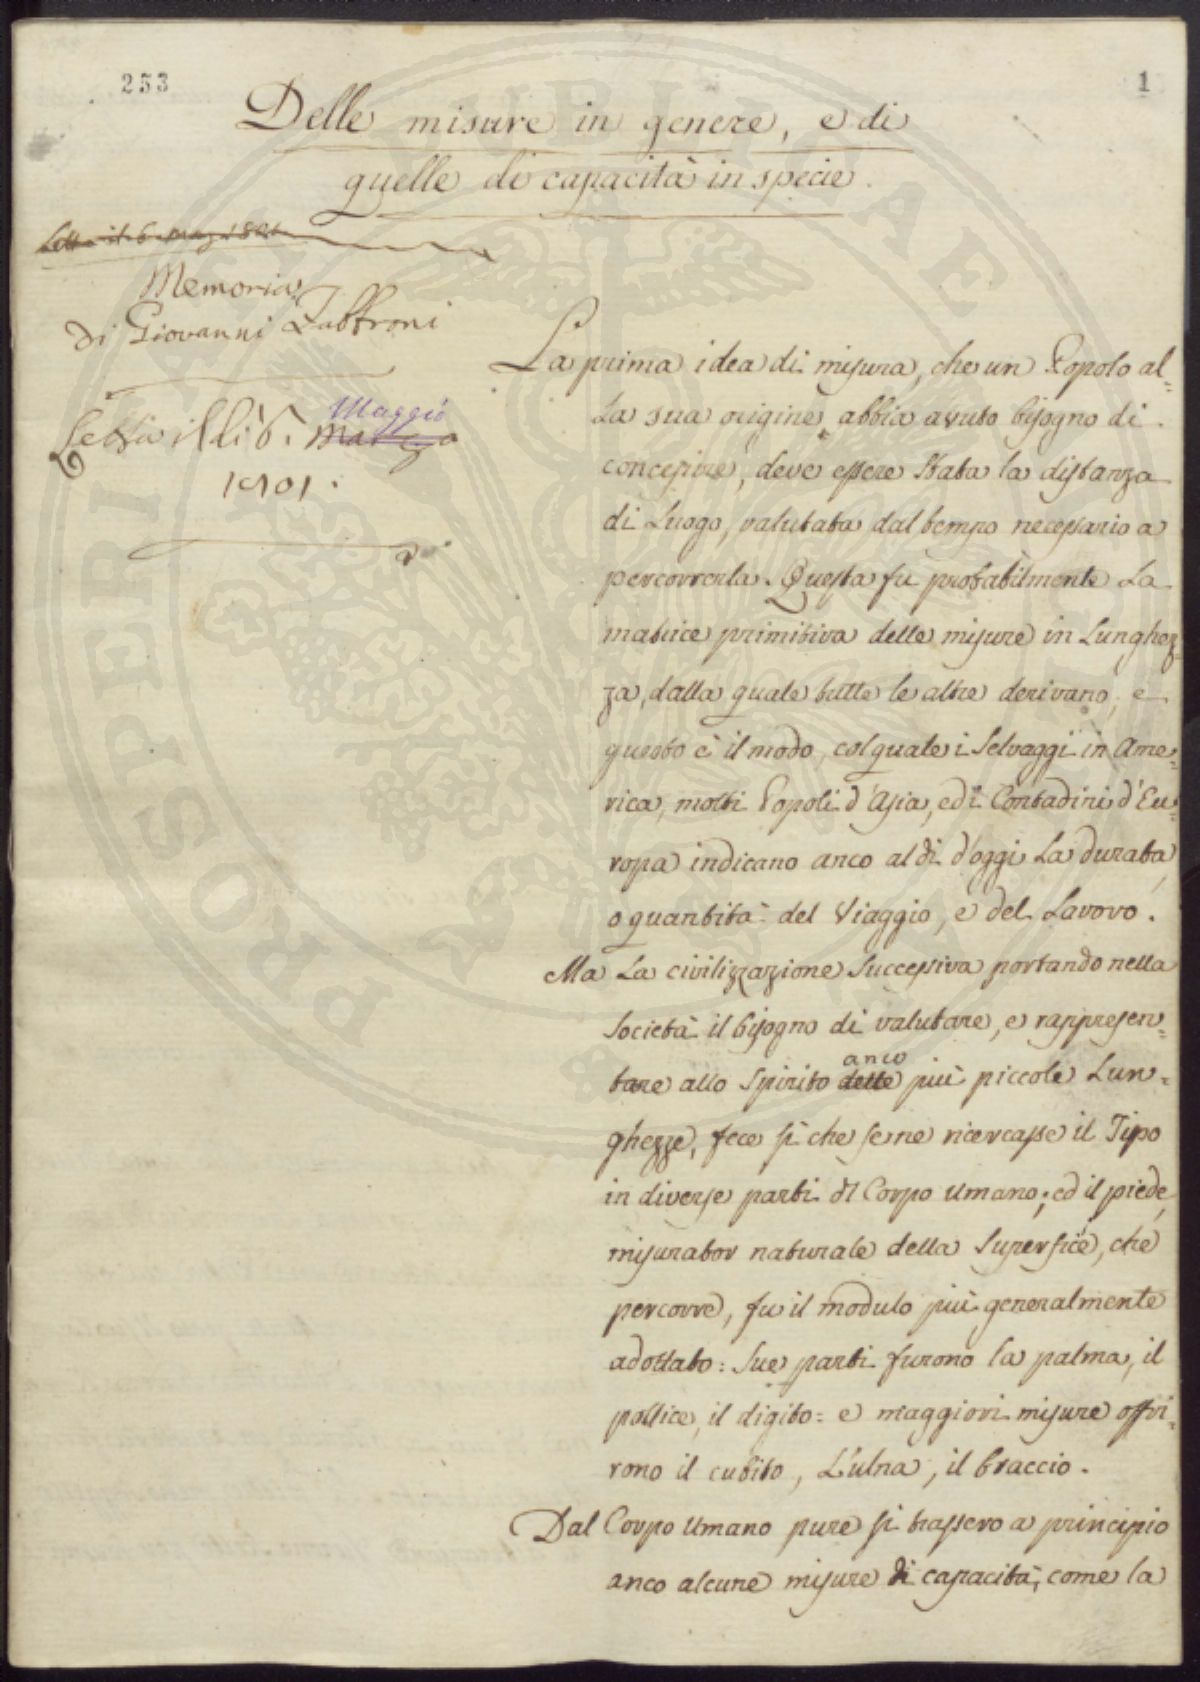 253
1
Delle misure in genere, e di
quelle di capacità in specie.
Letta il 6. Mag. 1801
Memoria
di Giovanni Fabbroni
Letta illì 6. Marzo Maggio
1801.
La prima idea di misura, che un Popolo al=
la sua origine, abbia avuto bisogno di
concepire, deve essere stata la distanza
di Luogo, valutata dal tempo necessario a
percorrerla. Questa fu probabilmente La
matrice primitiva delle misure in Lunghez=
za, dalla quale tutte le altre derivano, e
questo è il modo, col quale i Selvaggi in Ame=
rica, molti Popoli d'Asia, ed i Contadini d'Eu=
ropa indicano anco al dì d'oggi La durata,
o quantità del Viaggio, e del Lavoro.
Ma La civilizzazione successiva portando nella
Società il bisogno di valutare, e rappresen=
tare allo Spirito delle anco più piccole Lun=
ghezze, fece sì che se ne ricercasse il Tipo
in diverse parti dl Corpo Umano; ed il piede,
misurator naturale della Superficie, che
percorre, fu il modulo più generalmente
adottato: Sue parti furono la palma, il
pollice, il digito: e maggiori misure offri=
rono il cubito, L'ulna, il braccio.
Dal Corpo Umano pure si trassero a principio
anco alcune misure di capacità, come la
PROSPERITATI PUBLICAE